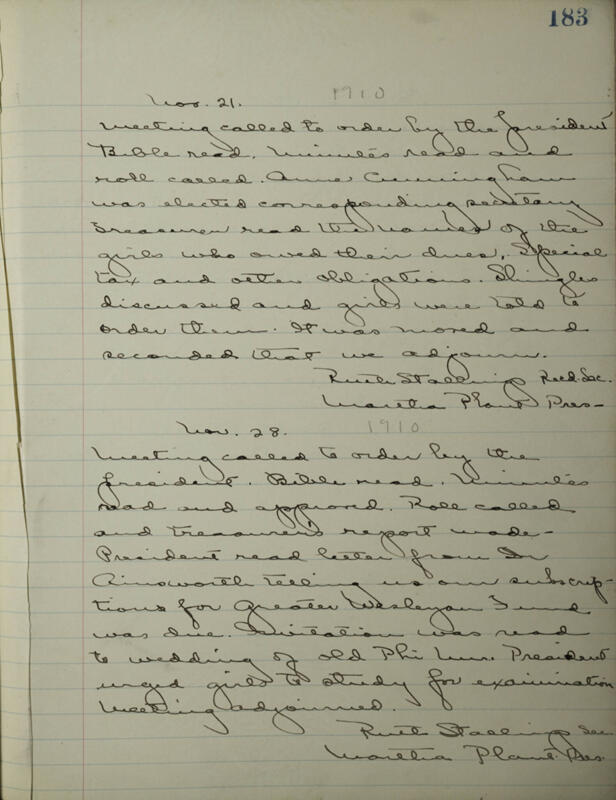 183
Nov. 21. 1910
Meeting called to order by the president
Bible read. Minutes read and
roll called. Anne Cunningham
was elected corresponding secretary
Treasurer read the names of the
girls who owed their dues, special
tax and other obligations. Shingles
discussed and girls were told to
order them. It was moved and
seconded that we adjourn.
Ruth Stallings Recd. Sec.
Martha Plant Pres-
Nov. 28. 1910
Meeting called to order by the
president. Bible read. Minutes
read and approved. Roll called
and treasurer's report made-
President read letter from Dr
Ainsworth telling us our subscrip-
tions for Greater Wesleyan Fund
was due. Invitation was read
to wedding of old Phi Mu. President
urged girls to study for examination
Meeting adjourned.
Ruth Stallings Sec
Martha Plant. Pres.